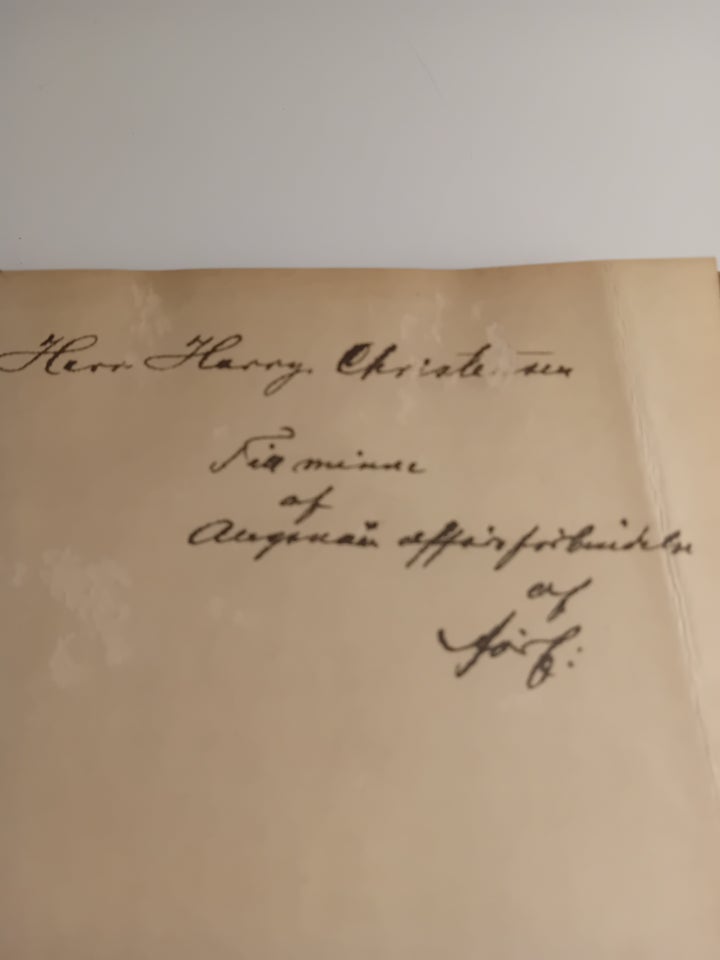 Herr Harry Christensen
Till minne
af
Angenäm affärsförbindelse
af
Förf: